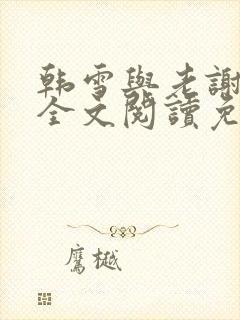 韩雪與老謝
全文閱讀免
鷹樾